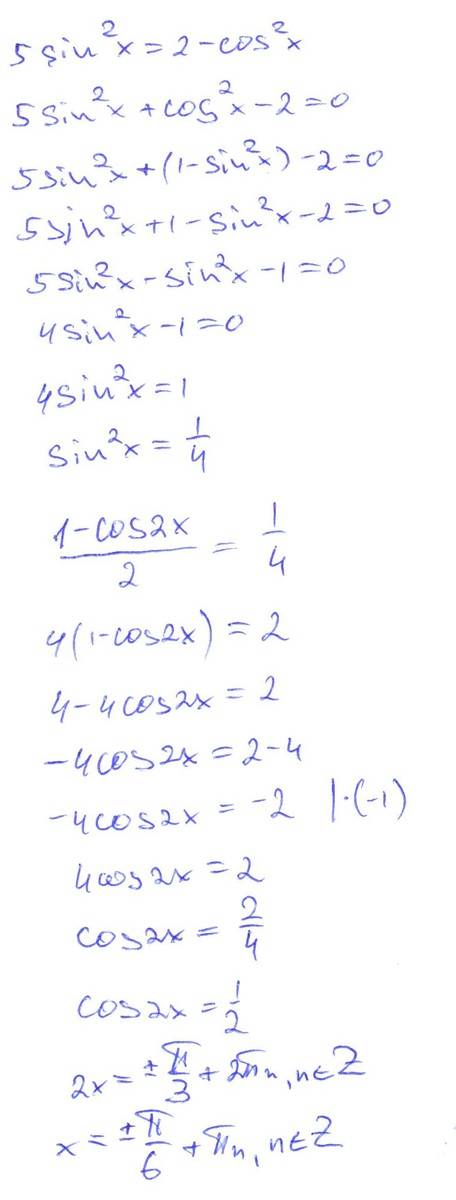 5sin²x = 2 - cos²x
5sin²x + cos²x - 2 = 0
5sin²x + (1 - sin²x) - 2 = 0
5sin²x + 1 - sin²x - 2 = 0
5sin²x - sin²x - 1 = 0
4sin²x - 1 = 0
4sin²x = 1
sin²x = 1/4
(1 - cos2x)/2 = 1/4
4(1 - cos2x) = 2
4 - 4cos2x = 2
-4cos2x = 2 - 4
-4cos2x = -2 | · (-1)
4cos2x = 2
cos2x = 2/4
cos2x = 1/2
2x = ± π/3 + 2πn, n ∈ Z
x = ± π/6 + πn, n ∈ Z